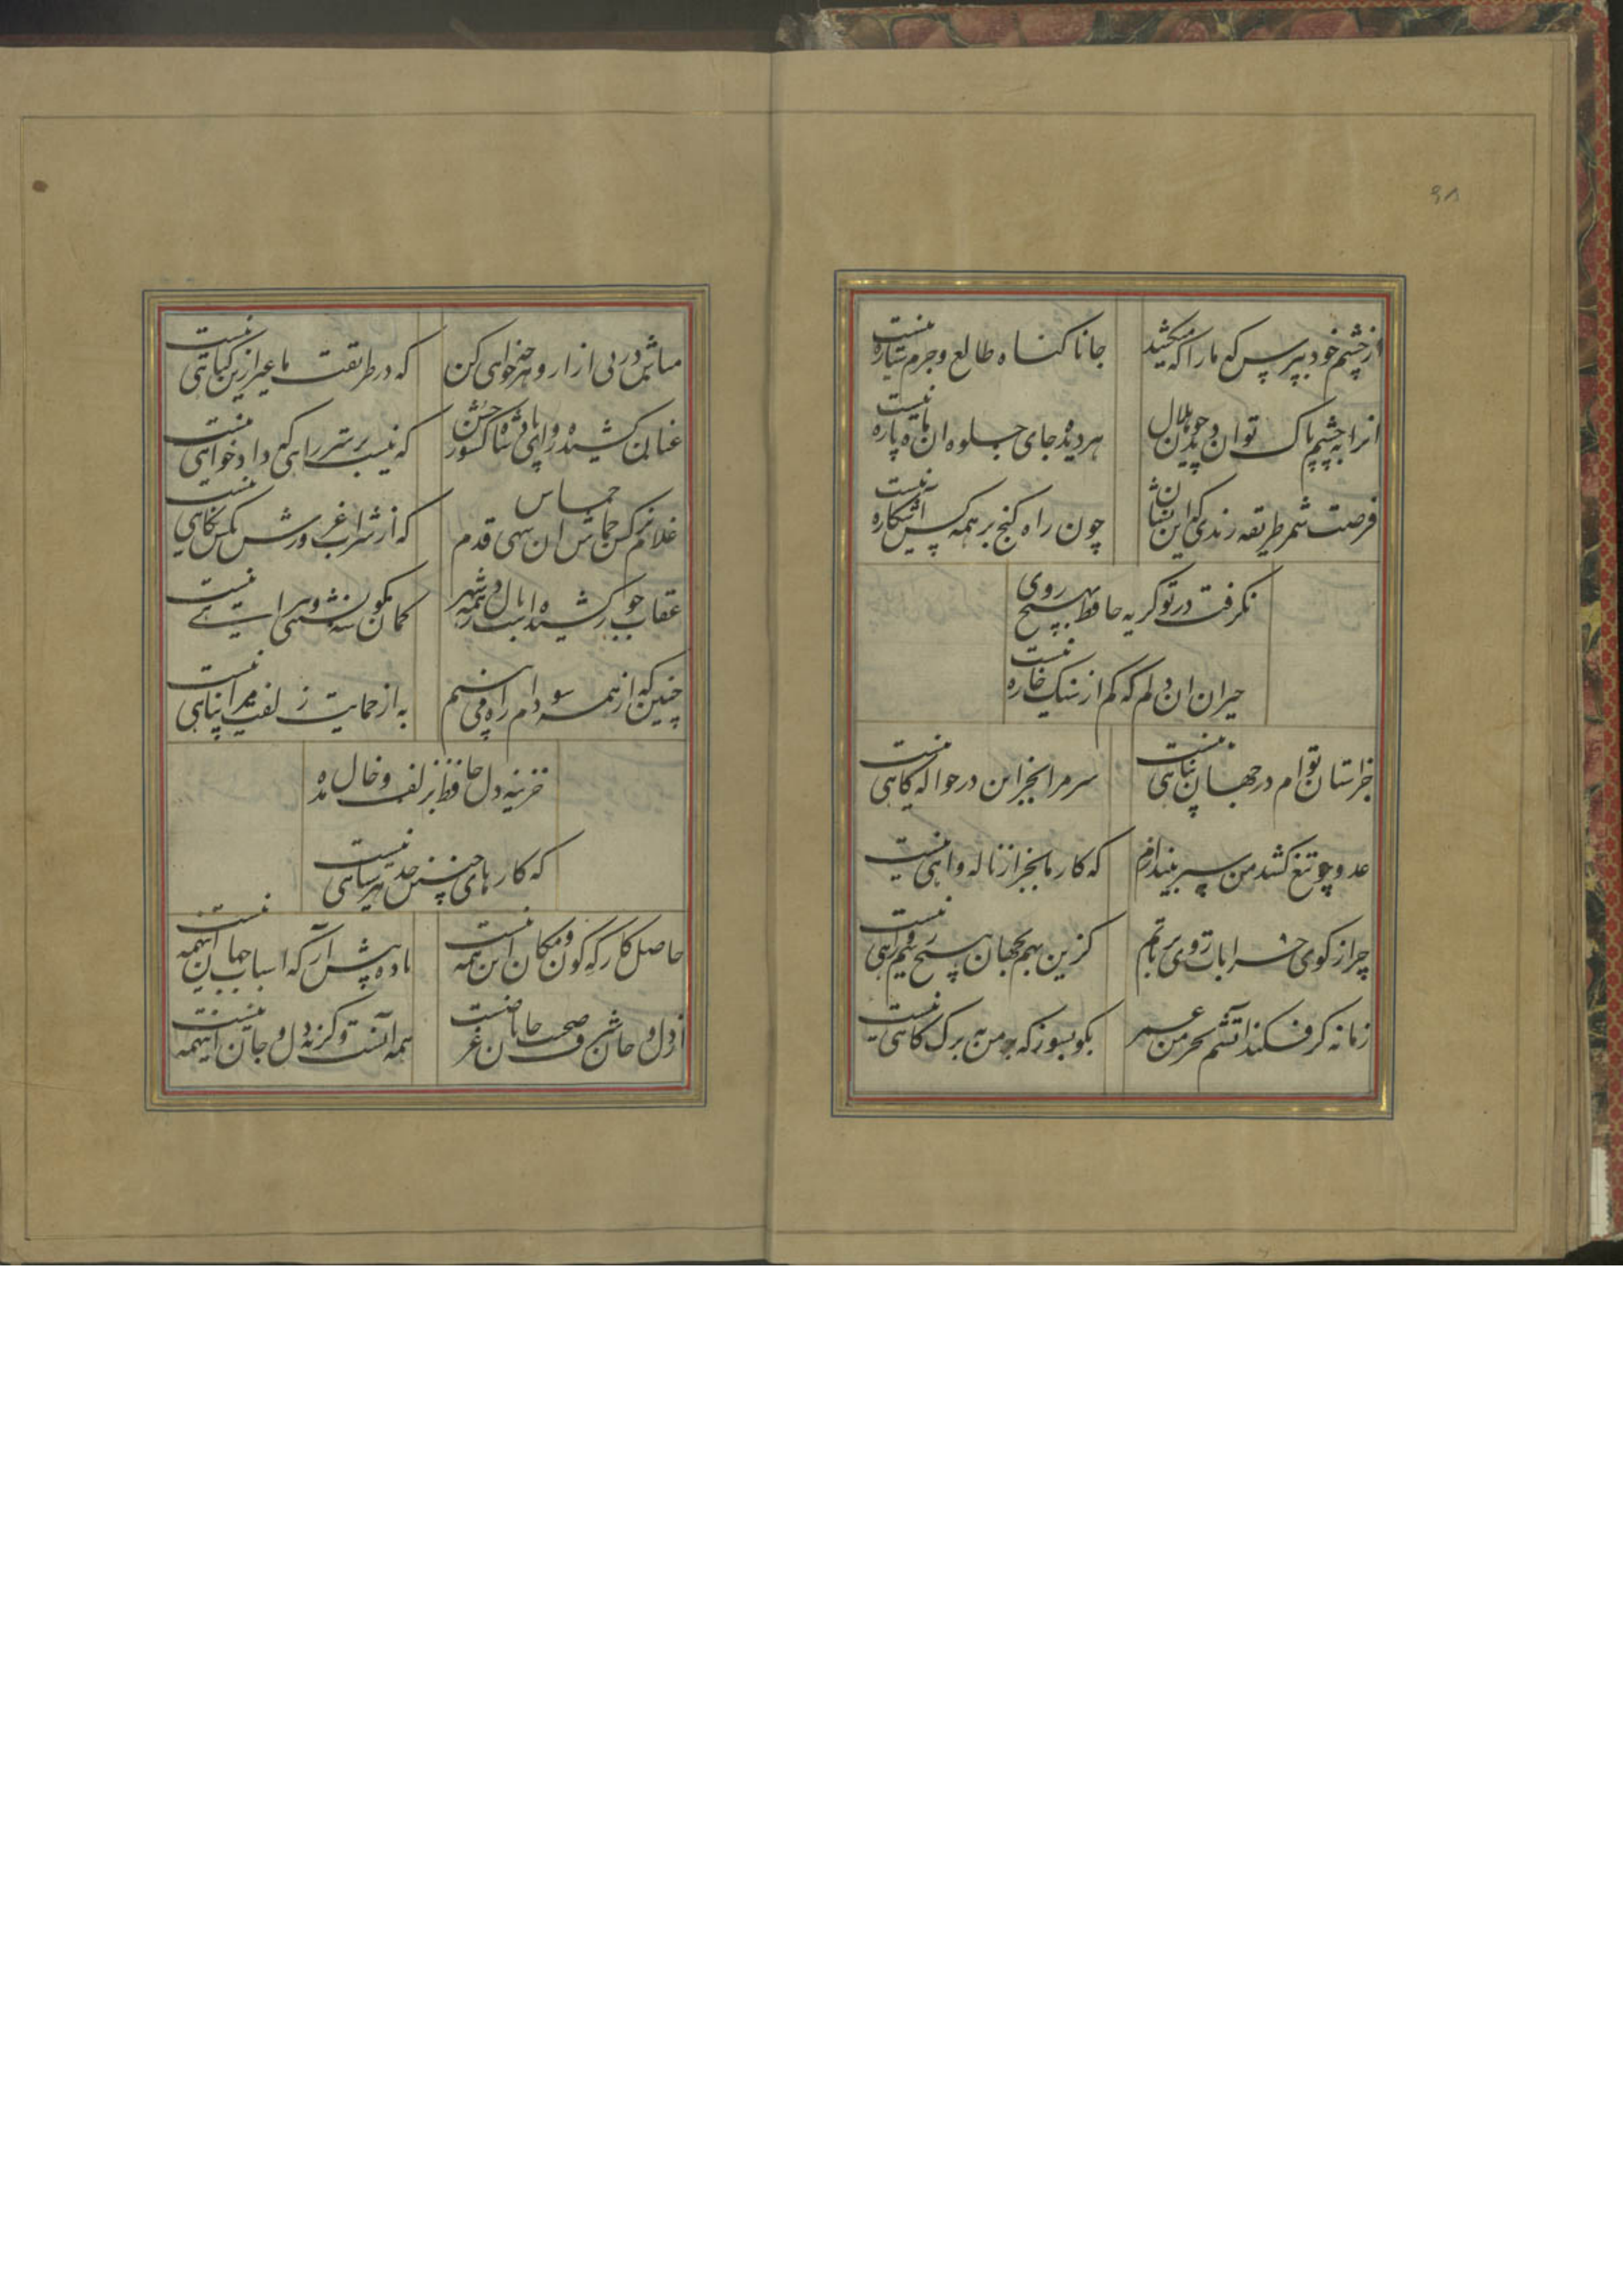 ۶۸
ازچشم خود بپرس که مارا که میکشد
جانا کناه طالع و جرم ستاره نیست
انرا بچشم پاک توان دید چون هلال
هر دیده جای جلوه ان ماه پاره نیست
فرصت شمر طریقه رندی که این نشان
چون راه کنج بر همه کس آشکاره نیست
نکرفت در تو کریه حافظ بهیچ روی
حیران ان دلم که کم از سنک خاره نیست
جز استان توام در جهان پناهی نیست
سر مرا بجز این در حواله کاهی نیست
عدو چو تیغ کشد من سپر بیندازم
که کار ما بجز از ناله و اهی نیست
چرا ز کوی خرابات روی برتابم
کزین بهم بجهان هیچ رسم و راهی نیست
زمانه کر فکند اتشم بخرمن عمر
بکو بسوز که بر من به برک کاهی نیست
مباش در پی ازار و هر چه خواهی کن
که در طریقت ما غیر ازین کناهی نیست
عنان کشیده رو ای پادشاه کشور حسن
که نیست بر سر راهی که دادخواهی نیست
غلام نرکس جماش ان سهی قدم
که از شراب غرورش بکس نکاهی نیست
عقاب جور کشیده است بال در همه شهر
کمان کوشه نشینی و تیر اهی نیست
چنین که از همه سو دام راه می‌بینم
به از حمایت زلفت مرا پناهی نیست
خزینه دل حافظ بزلف و خال مده
که کارهای چنین حد هر سیاهی نیست
حاصل کارکه کون و مکان این همه نیست
باده پیش آر که اسباب جهان اینهمه نیست
از دل و جان شرف صحبت جانان غرضست
همه آنست و کرنه دل و جان اینهمه نیست